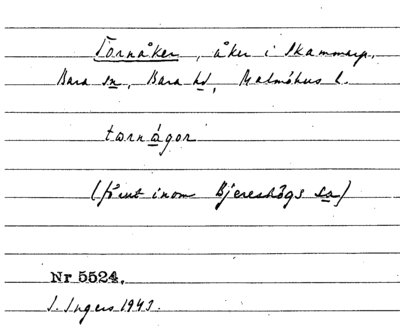 Tornåker, åker i Skammarp.
Bara sn, Bara hd, Malmöhus l.
tornågor
(förut inom Bjereshögs sn)
Nr 5524.
I. Ingers 1943.